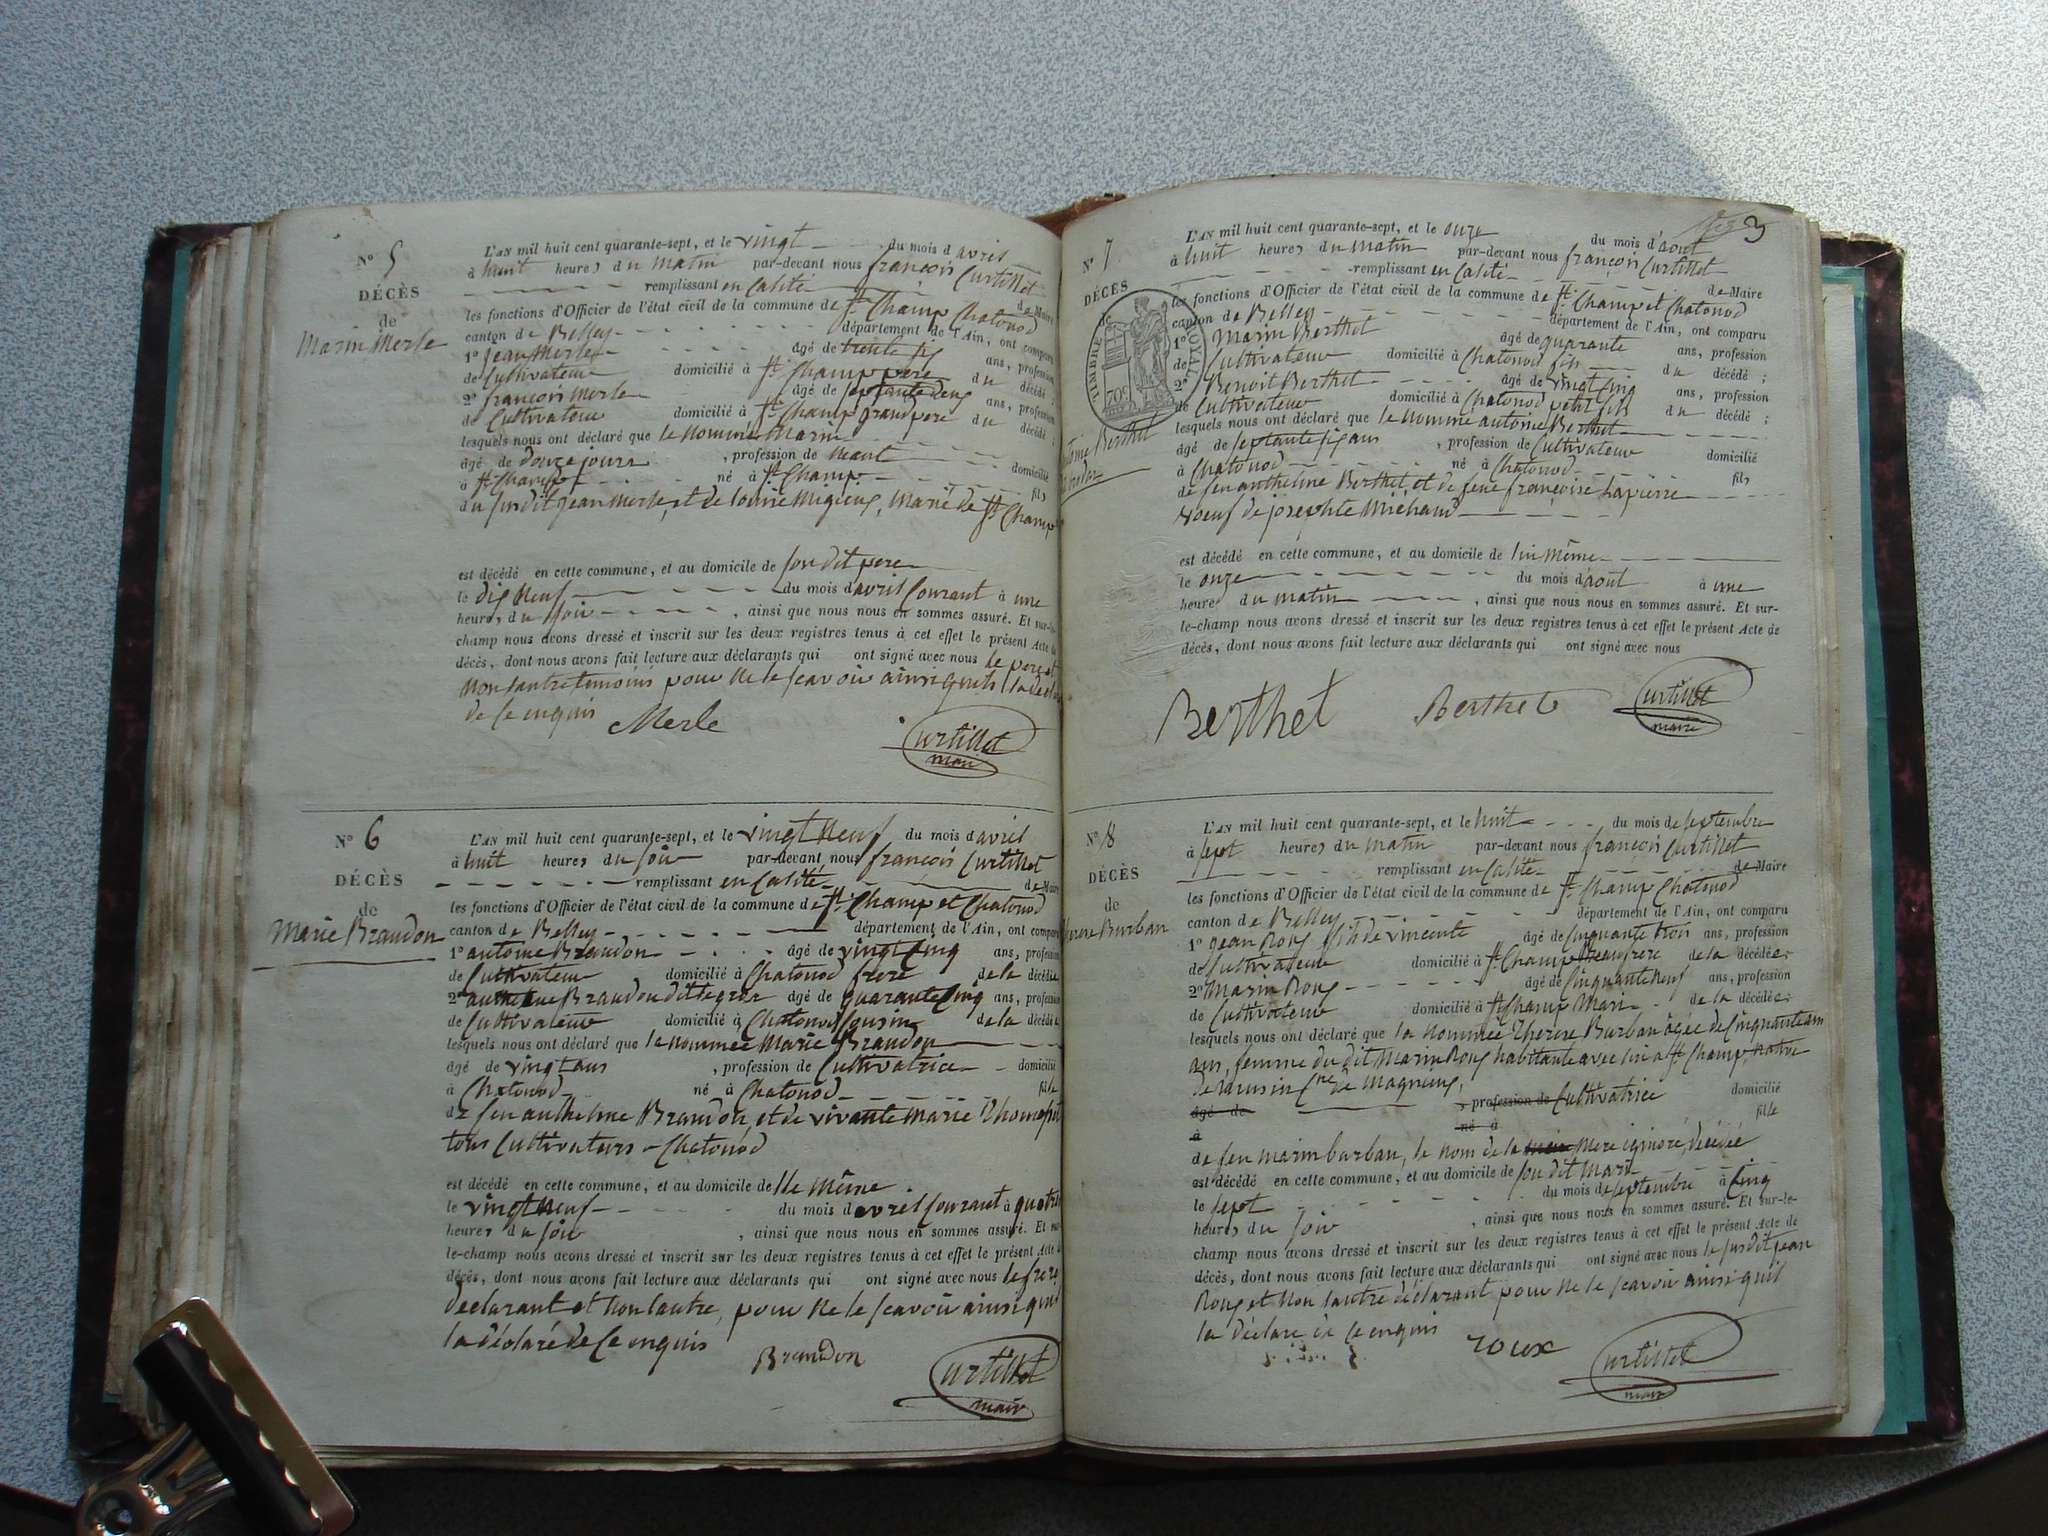 N° 5
DÉCÈS
de
Marin Merle
L'AN mil huit cent quarante-sept, et le vingt du mois d'avril
à huit heures du matin par-devant nous françois Curtillet
remplissant en Calité de Maire
les fonctions d'Officier de l'état civil de la commune de St. Champ Chatonod
canton de Belley département de l'Ain, ont comparu
1° jean Merle âgé de trente six ans, profession
de Cultivateur domicilié à St. Champ pere du décédé ;
2° françois Merle âgé de septante deux ans, profession
de Cultivateur domicilié à St. Champ grand pere du décédé ;
lesquels nous ont déclaré que le nommé Marin
âgé de douze jours , profession de domicilié
à St Champ né à St. Champ fils
du susdit jean Merle, et de louise Migieux, Marié de St Champ
est décédé en cette commune, et au domicile de son dit pere
le dix neuf du mois d'avril Courant à une
heures du soir , ainsi que nous nous en sommes assuré. Et sur-le-
champ nous avons dressé et inscrit sur les deux registres tenus à cet effet le présent Acte de
décès, dont nous avons fait lecture aux déclarants qui ont signé avec nous le pere et
non lautre temoins pour ne le scavoir ainsi quils la
de ce enquis
Merle
Curtillet
maire
N° 6
DÉCÈS
de
Marie Brandon
L'AN mil huit cent quarante-sept, et le vingt neuf du mois d'avril
à huit heures du soir par-devant nous françois Curtillet
remplissant en Calité de Maire
les fonctions d'Officier de l'état civil de la commune de St. Champ et Chatonod
canton de Belley département de l'Ain, ont comparu
1° antoine Brandon âgé de vingt Cinq ans, profession
de Cultivateur domicilié à Chatonod frere de la décédée
2° anthelme Brandon dit âgé de quarante Cinq ans, profession
de Cultivateur domicilié à Chatonod Cousin de la décédée
lesquels nous ont déclaré que la nommée Marie Brandon
âgé de vingt ans , profession de Cultivatrice domicilié
à Chatonod né à Chatonod fille
de feu anthelme Brandon, et de vivante Marie
tous Cultivateurs a Chatonod
est décédé en cette commune, et au domicile de lle même
le vingt neuf du mois d'avril Courant à quatre
heures du soir , ainsi que nous nous en sommes assuré. Et sur-
le-champ nous avons dressé et inscrit sur les deux registres tenus à cet effet le présent Acte de
décès, dont nous avons fait lecture aux déclarants qui ont signé avec nous le frere
declarant et non lautre, pour ne le scavoir ainsi quil
la déclaré de Ce enquis
Brandon
Curtillet
maire
3
N° 7
DÉCÈS
de
TIMBRE ROYAL
70c
Berthet
L'AN mil huit cent quarante-sept, et le onze du mois d'aout
à huit heures du matin par-devant nous françois Curtillet
remplissant en Calité de Maire
les fonctions d'Officier de l'état civil de la commune de St. Champ et Chatonod
canton de Belley département de l'Ain, ont comparu
1° Marin Berthet âgé de quarante ans, profession
de Cultivateur domicilié à Chatonod fils du décédé ;
2° Benoit Berthet âgé de vingt Cinq ans, profession
de Cultivateur domicilié à Chatonod petit fils du décédé ;
lesquels nous ont déclaré que le nommé antoine Berthet
âgé de septante six ans , profession de Cultivateur domicilié
à Chatonod né à Chatonod fils
de feu anthelme Berthet, et de feue françoise Lapierre
Voeuf de josephte Michaud
est décédé en cette commune, et au domicile de lui même
le onze du mois d'aout à une
heures du matin , ainsi que nous nous en sommes assuré. Et sur-
le-champ nous avons dressé et inscrit sur les deux registres tenus à cet effet le présent Acte de
décès, dont nous avons fait lecture aux déclarants qui ont signé avec nous
Berthet
Berthet
Curtillet
maire
N° 8
DÉCÈS
de
Burban
L'AN mil huit cent quarante-sept, et le huit du mois de septembre
à sept heures du matin par-devant nous françois Curtillet
remplissant en Calité de Maire
les fonctions d'Officier de l'état civil de la commune de St. Champ Chatonod
canton de Belley département de l'Ain, ont comparu
1° jean Roux fils de vincente âgé de Cinquante trois ans, profession
de Cultivateur domicilié à St. Champ beau frere de la décédée;
2° Marin Roux âgé de Cinquante neuf ans, profession
de Cultivateur domicilié à St Champ Mari de la décédée;
lesquels nous ont déclaré que la nommée Therese Burban agée de Cinquante
ans, femme du dit Marin Roux habitante avec lui a St. Champ, native
de Cne de Magnieux,
âgé de , profession de Cultivatrice domicilié
à né à fille
de feu marin burban, le nom de la mere ignoré, decédée
est décédé en cette commune, et au domicile de son dit Mari
le sept du mois de septembre à Cinq
heures du soir , ainsi que nous nous en sommes assuré. Et sur-le-
champ nous avons dressé et inscrit sur les deux registres tenus à cet effet le présent Acte de
décès, dont nous avons fait lecture aux déclarants qui ont signé avec nous le susdit jean
Roux et non lautre déclarant pour ne le scavoir ainsi quil
la déclaré de Ce enquis
roux
Curtillet
maire